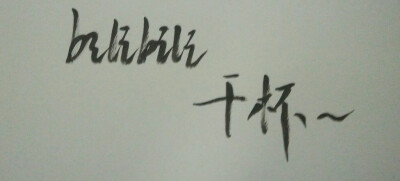 bilibili
干杯~